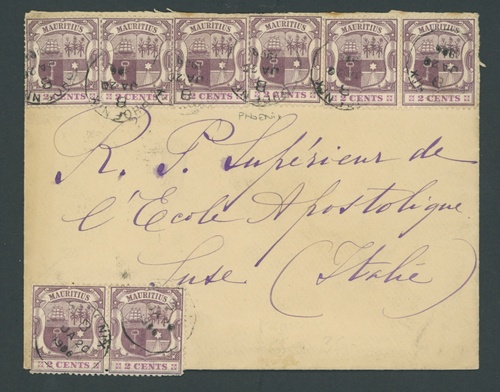 MAURITIUS MAURITIUS MAURITIUS MAURITIUS MAURITIUS MAURITIUS
2 CENTS 2 CENTS 2 CENTS 2 CENTS 2 CENTS 2 CENTS
PHOENIX
R. P. Supérieur de
l'Ecole Apostolique
Suse (Italie)
MAURITIUS MAURITIUS
2 CENTS 2 CENTS